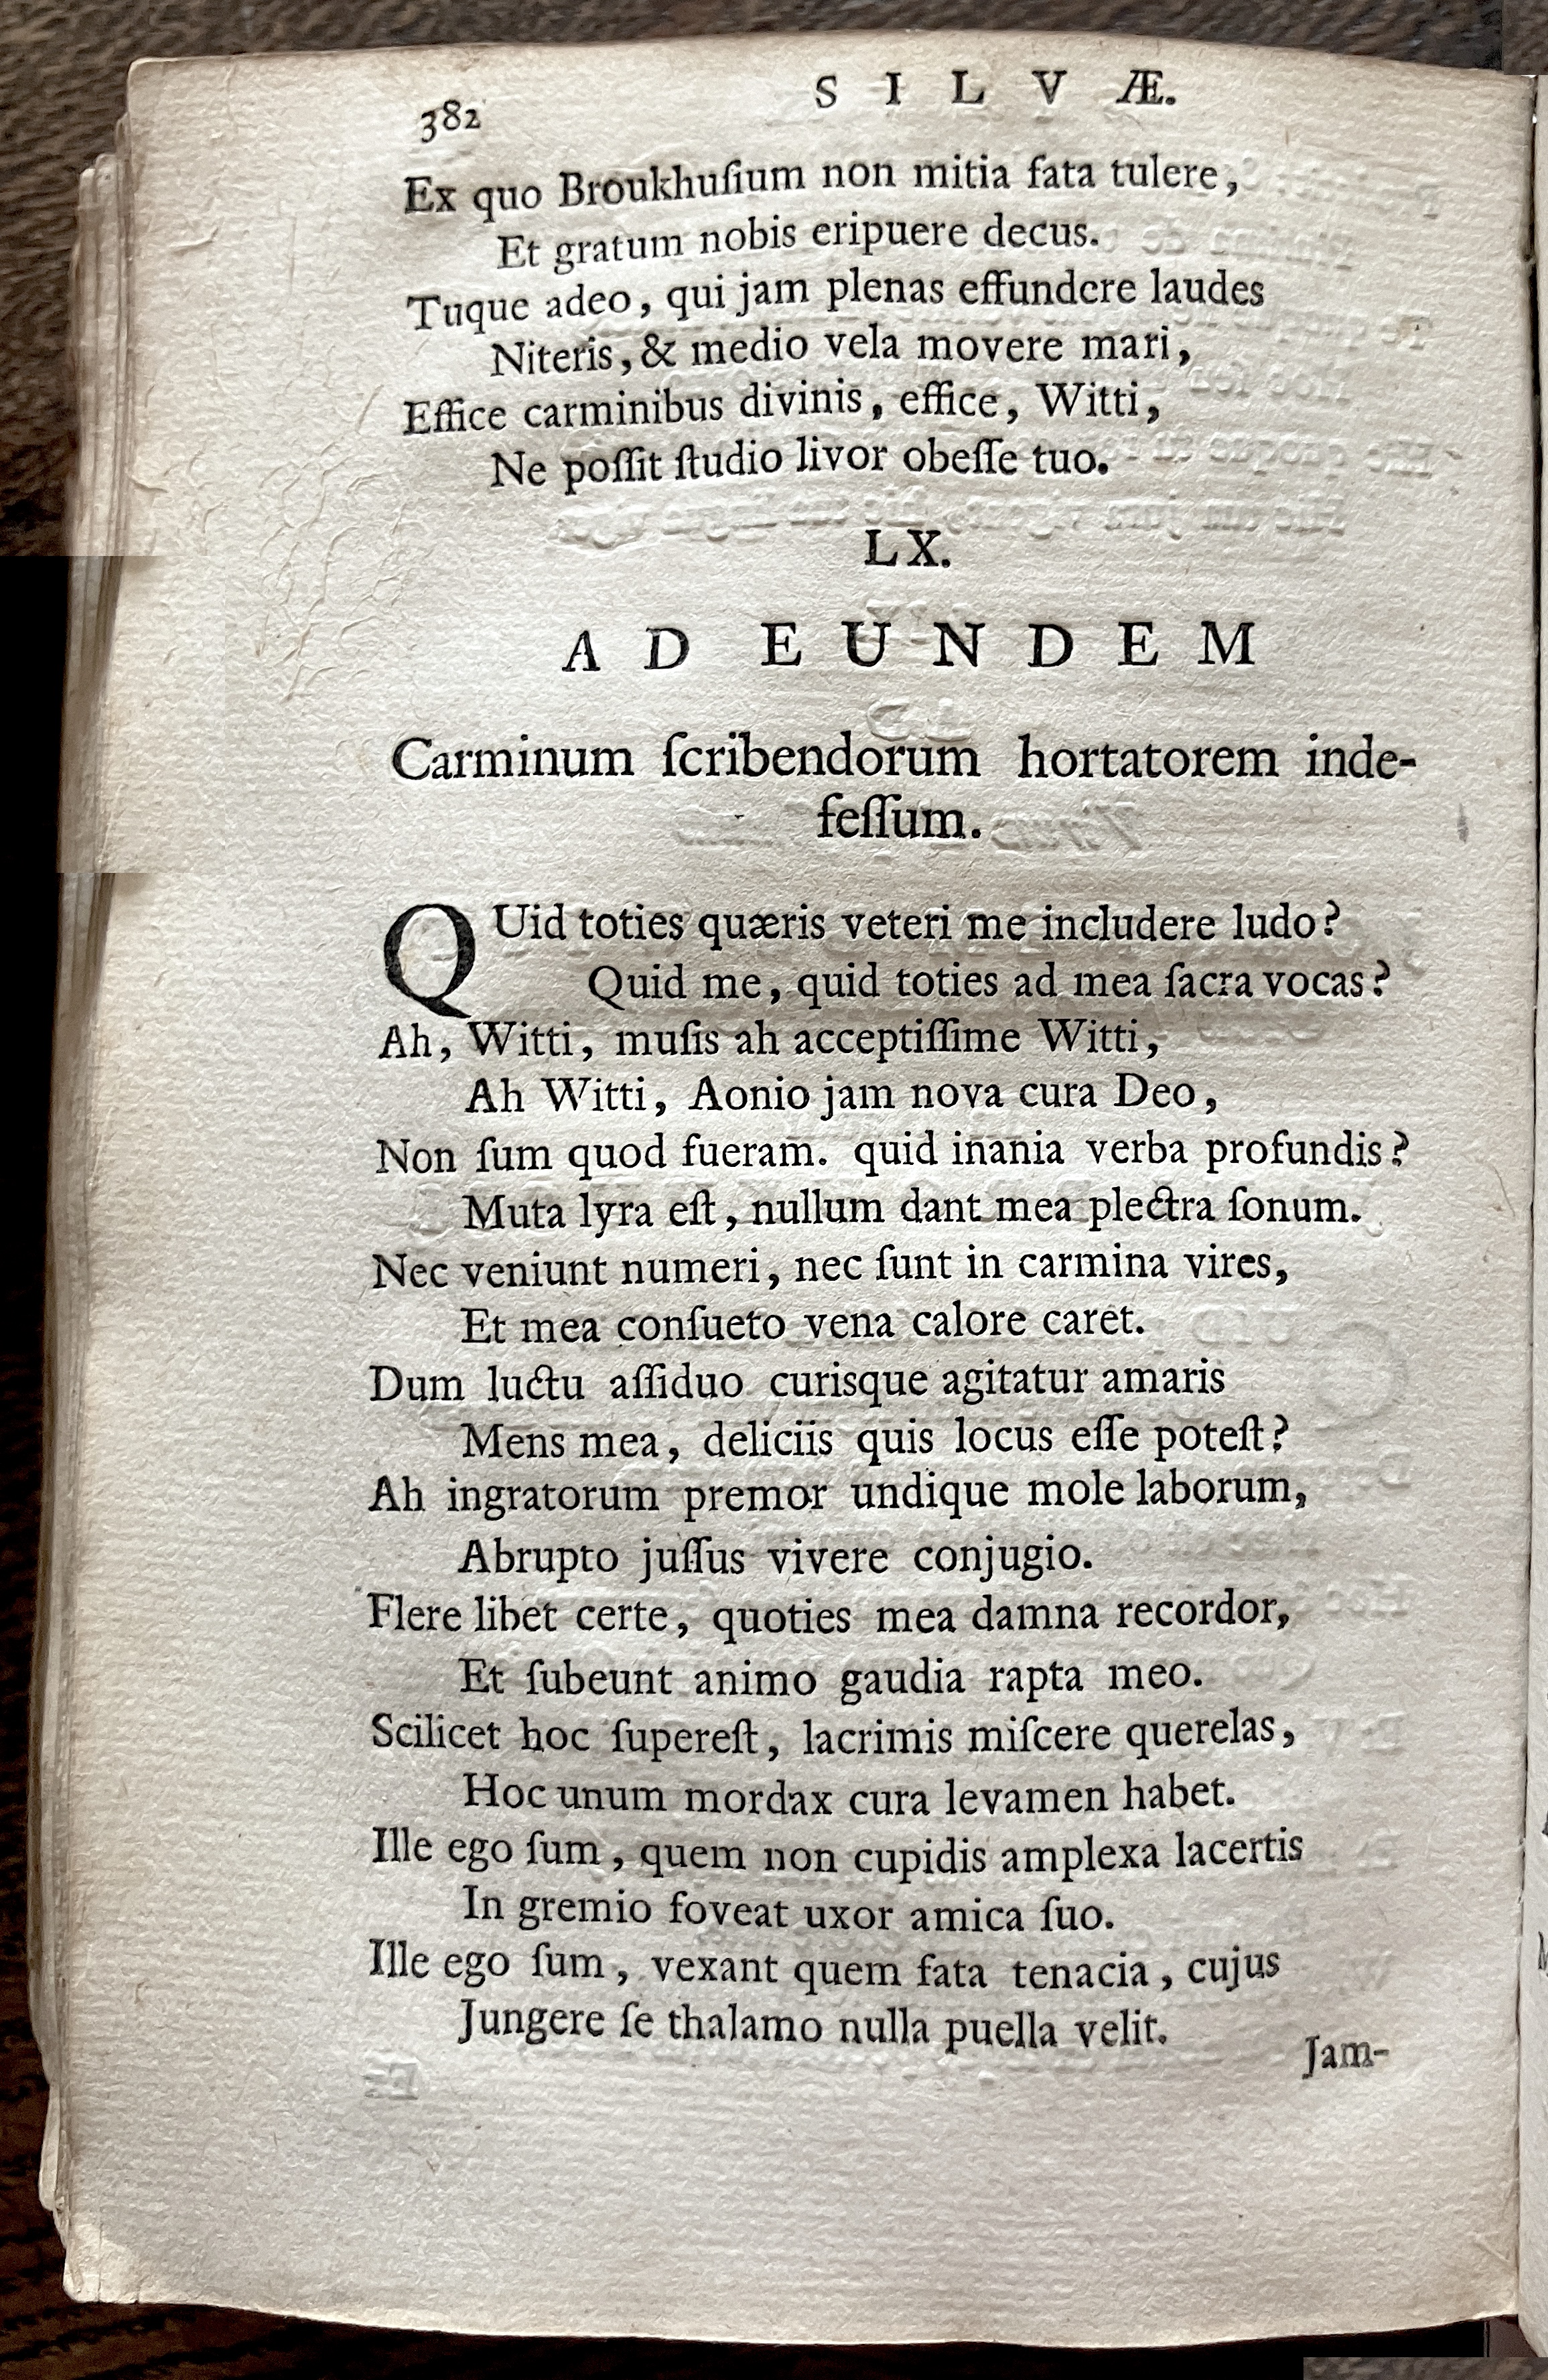 382
SILVÆ.
Ex quo Broukhuſium non mitia fata tulere,
Et gratum nobis eripuere decus.
Tuque adeo, qui jam plenas effundere laudes
Niteris, & medio vela movere mari,
Effice carminibus divinis, effice, Witti,
Ne poſſit ſtudio livor obeſſe tuo.
LX.
AD EUNDEM
Carminum ſcribendorum hortatorem inde-
feſſum.
QUid toties quæris veteri me includere ludo?
Quid me, quid toties ad mea ſacra vocas?
Ah, Witti, muſis ah acceptiſſime Witti,
Ah Witti, Aonio jam nova cura Deo,
Non ſum quod fueram. quid inania verba profundis?
Muta lyra eſt, nullum dant mea plectra ſonum.
Nec veniunt numeri, nec ſunt in carmina vires,
Et mea conſueto vena calore caret.
Dum luctu aſſiduo curisque agitatur amaris
Mens mea, deliciis quis locus eſſe poteſt?
Ah ingratorum premor undique mole laborum,
Abrupto juſſus vivere conjugio.
Flere libet certe, quoties mea damna recordor,
Et ſubeunt animo gaudia rapta meo.
Scilicet hoc ſupereſt, lacrimis miſcere querelas,
Hoc unum mordax cura levamen habet.
Ille ego ſum, quem non cupidis amplexa lacertis
In gremio foveat uxor amica ſuo.
Ille ego ſum, vexant quem fata tenacia, cujus
Jungere ſe thalamo nulla puella velit.
Jam-